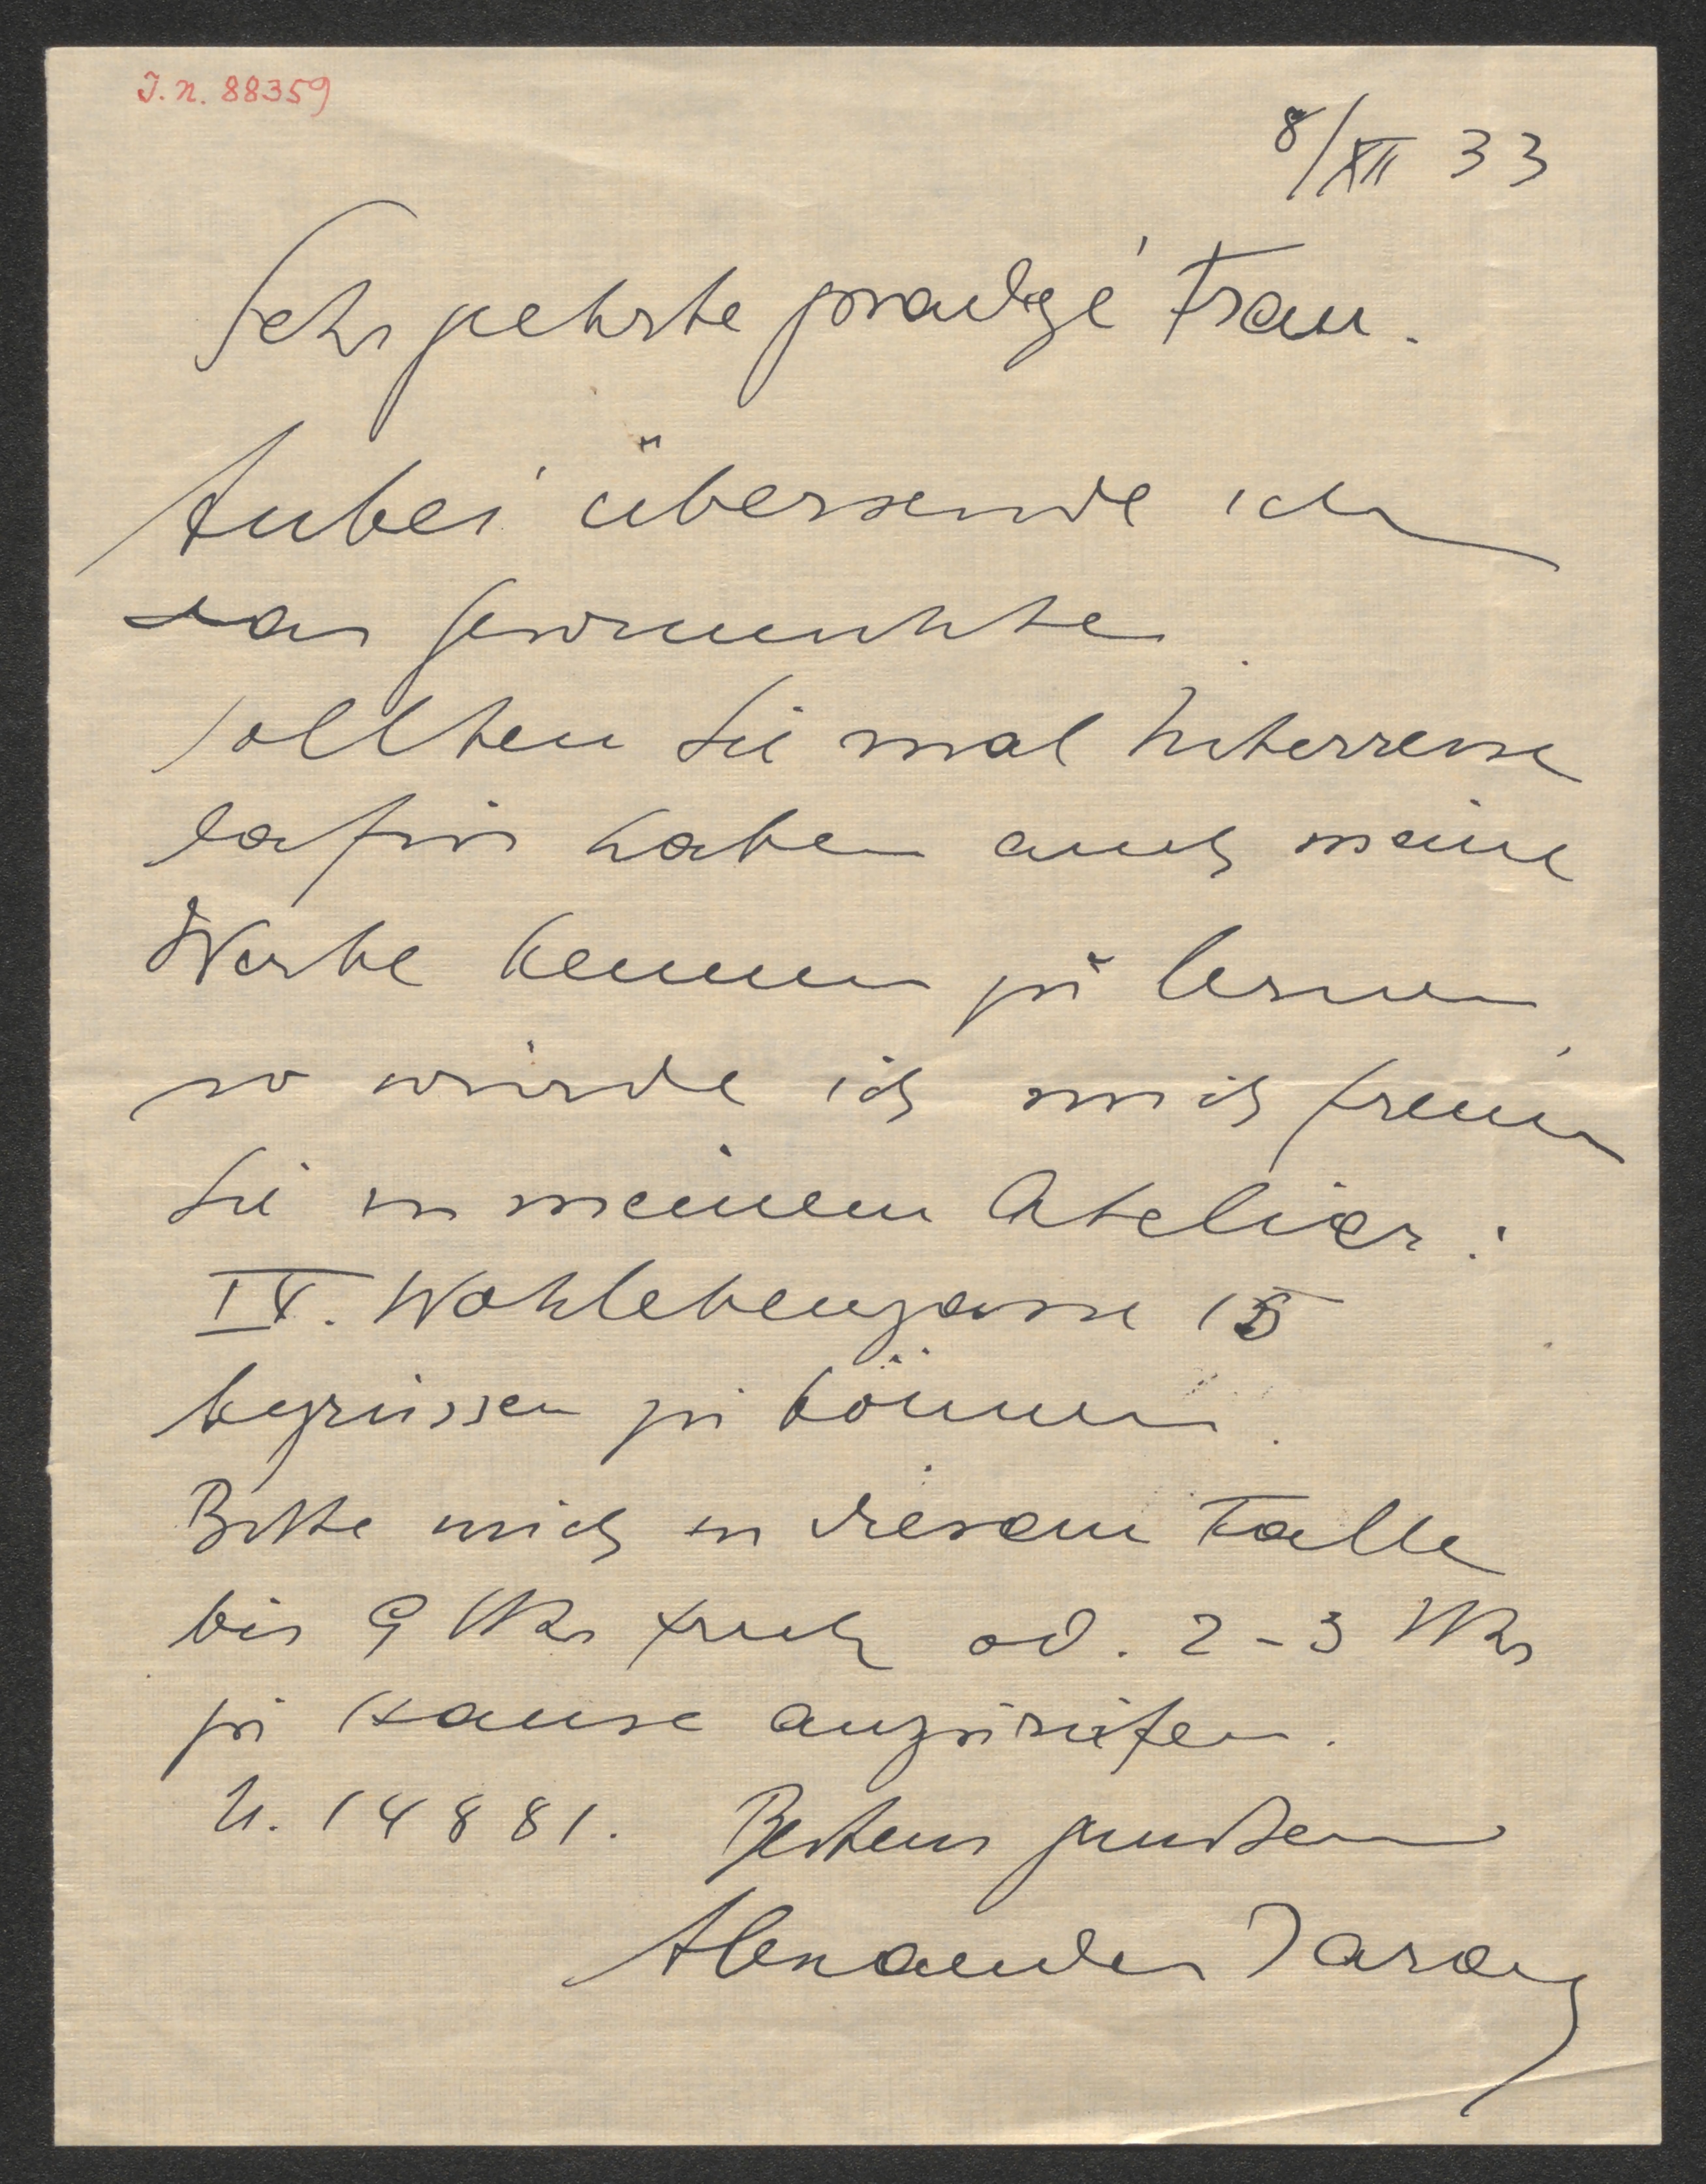 J.N. 88359
8/XII 33
Sehr geehrte gnädige Frau.
Anbei übersende ich
das Gewünschte.
Sollten Sie mal Interresse
dafür haben auch meine
Werke kennen zu lernen
so würde ich mich freuen
Sie in meinem Atelier:
IV. Wohllebengasse 15
begrüssen zu können.
Bitte mich in diesem Falle
bis 9 Uhr früh od. 2-3 Uhr
zu Hause anzurufen.
U. 14881. Bestens grüssend
Alexander Jaray